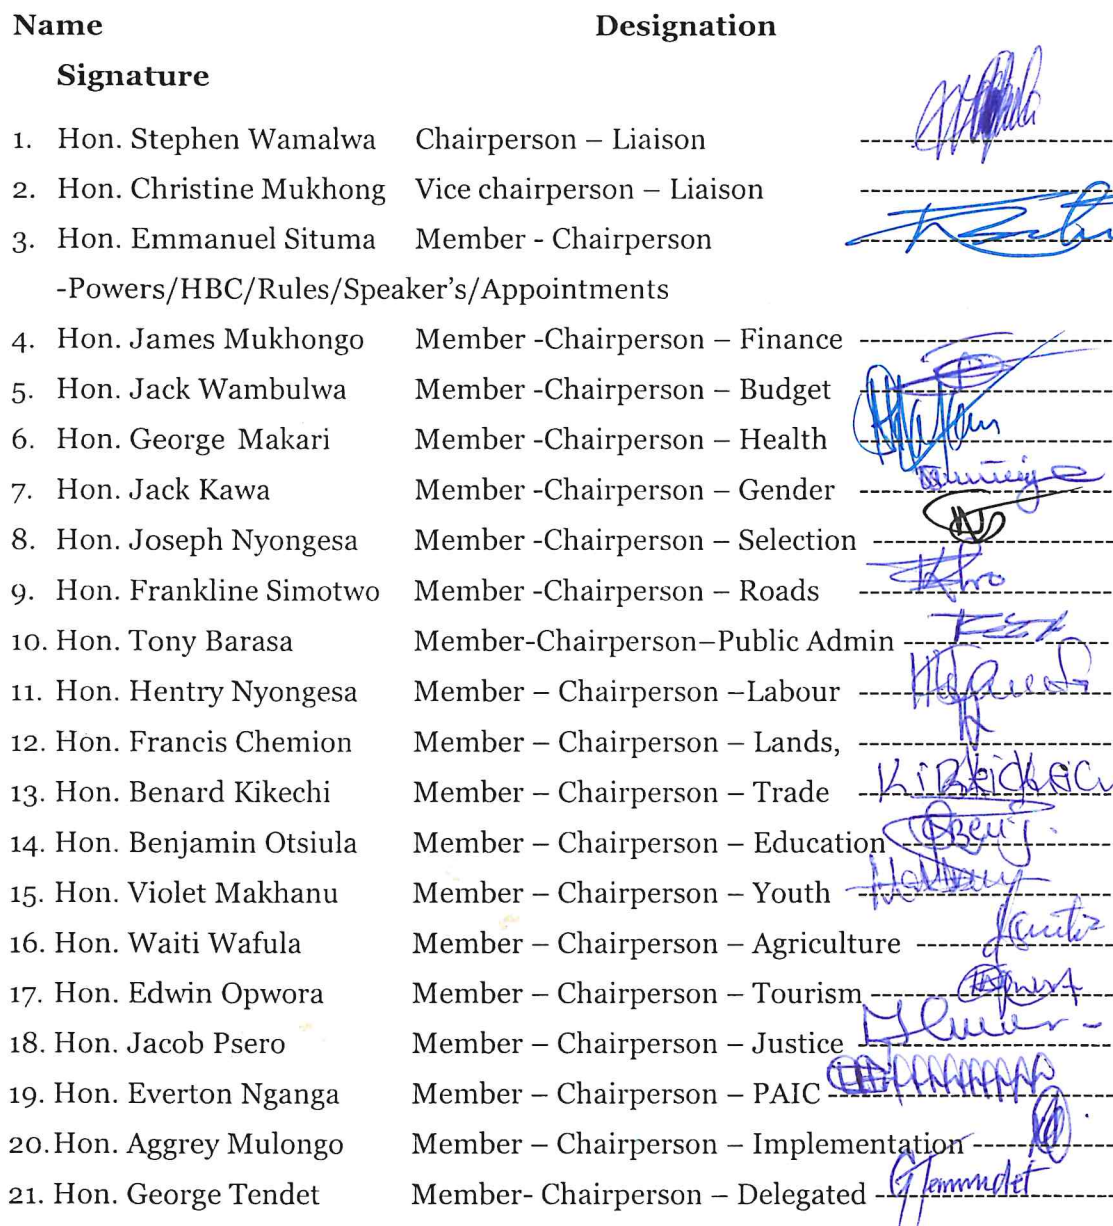 Name Designation
Signature
1. Hon. Stephen Wamalwa Chairperson – Liaison
2. Hon. Christine Mukhong Vice chairperson – Liaison
3. Hon. Emmanuel Situma Member - Chairperson
-Powers/HBC/Rules/Speaker's/Appointments
4. Hon. James Mukhongo Member -Chairperson – Finance
5. Hon. Jack Wambulwa Member -Chairperson – Budget
6. Hon. George Makari Member -Chairperson – Health
7. Hon. Jack Kawa Member -Chairperson – Gender
8. Hon. Joseph Nyongesa Member -Chairperson – Selection
9. Hon. Frankline Simotwo Member -Chairperson – Roads
10. Hon. Tony Barasa Member-Chairperson–Public Admin
11. Hon. Hentry Nyongesa Member – Chairperson –Labour
12. Hon. Francis Chemion Member – Chairperson – Lands,
13. Hon. Benard Kikechi Member – Chairperson – Trade
14. Hon. Benjamin Otsiula Member – Chairperson – Education
15. Hon. Violet Makhanu Member – Chairperson – Youth
16. Hon. Waiti Wafula Member – Chairperson – Agriculture
17. Hon. Edwin Opwora Member – Chairperson – Tourism
18. Hon. Jacob Psero Member – Chairperson – Justice
19. Hon. Everton Nganga Member – Chairperson – PAIC
20. Hon. Aggrey Mulongo Member – Chairperson – Implementation
21. Hon. George Tendet Member- Chairperson – Delegated